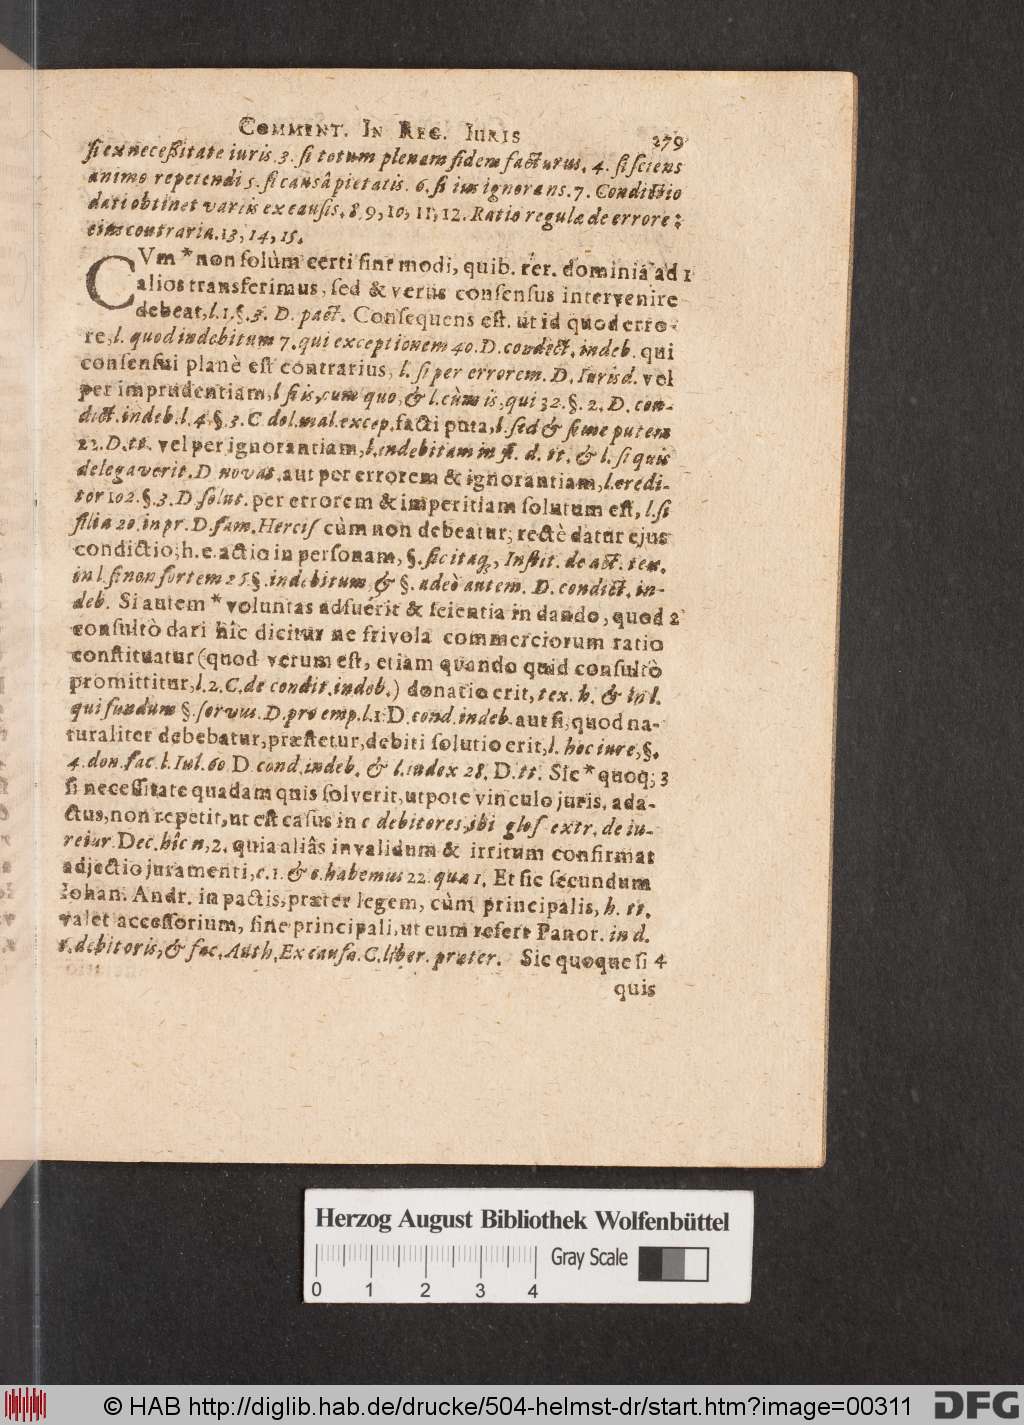 COMMENT. IN REG. IURIS 279
ſi ex neceßitate iuris. 3. ſi totum plenam fidem facturus, 4. ſi ſciens
animo repetendi 5. ſi causâ pietatis. 6. ſi ius ignorans. 7. Condictio
dati obtinet variis ex cauſis, 8, 9, 10, 11, 12. Ratio regulæ de errore:
eius contraria. 13, 14, 15.
CVm * non ſolùm certi ſint modi, quib. rer. dominia ad 1
alios transferimus, ſed & verus conſenſus intervenire
debeat, l. 1. §. 3. D. pact. Conſequens eſt. ut id quod erro-
re, l. quod indebitum 7. qui exceptionem 40. D. condict. indeb. qui
conſenſui planè eſt contrarius, l. ſi per errorem. D. Iurisd. vel
per imprudentiam, l ſi is, cum quo, & l. cùm is, qui 32. §. 2, D. con-
dict. indeb. l. 4. §. 3. C dol. mal. excep. facti puta, l. ſed & ſi me putem
22. D. tt. vel per ignorantiam, l. indebitam in fi. d. tt. & l. ſi quis
delegaverit. D novat. aut per errorem & ignorantiam, l. credi-
tor 102. §. 3. D ſolut. per errorem & imperitiam ſolutum eſt, l. ſi
filia 20. in pr. D. fam. Herciſ cùm non debeatur, rectè datur ejus
condictio, h. e. actio in perſonam, §. ſic itaq;, Inſtit. de act. tex.
in l. ſi non ſortem 25 §. indebitum & §. adeò autem. D. condict. in-
deb. Si autem * voluntas adfuerit & ſcientia in dando, quod 2
conſultò dari hîc dicitur ne frivola commerciorum ratio
conſtituatur (quod verum eſt, etiam quando quid conſultò
promittitur, l. 2. C. de condit. indeb.) donatio erit, tex. h. & in l.
qui fundum §. ſervus. D. pro emp. l. 1 D. cond. indeb. aut ſi, quod na-
turaliter debebatur, præſtetur, debiti ſolutio erit, l. hoc iure, §.
4. don. fac. l. Iul. 60 D. cond. indeb. & l. index 28. D. tt. Sic * quoq; 3
ſi neceſſitate quadam quis ſolverit, utpote vinculo juris, ada-
ctus, non repetit, ut eſt caſus in c debitores, ibi gloſ extr. de iu-
reiur. Dec. hîc n, 2. quia aliâs invalidum & irritum confirmat
adjectio juramenti, c. 1. & c. habemus 22. qua 1. Et ſic ſecundum
Iohan. Andr. in pactis, præter legem, cùm principalis, h. tt.
valet acceſſorium, ſine principali, ut eum refert Panor. in d.
c. debitoris, & fac. Auth. Ex cauſa. C. liber. præter. Sic quoque ſi 4
quis
Herzog August Bibliothek Wolfenbüttel
Gray Scale
0 1 2 3 4
© HAB http://diglib.hab.de/drucke/504-helmst-dr/start.htm?image=00311 DFG